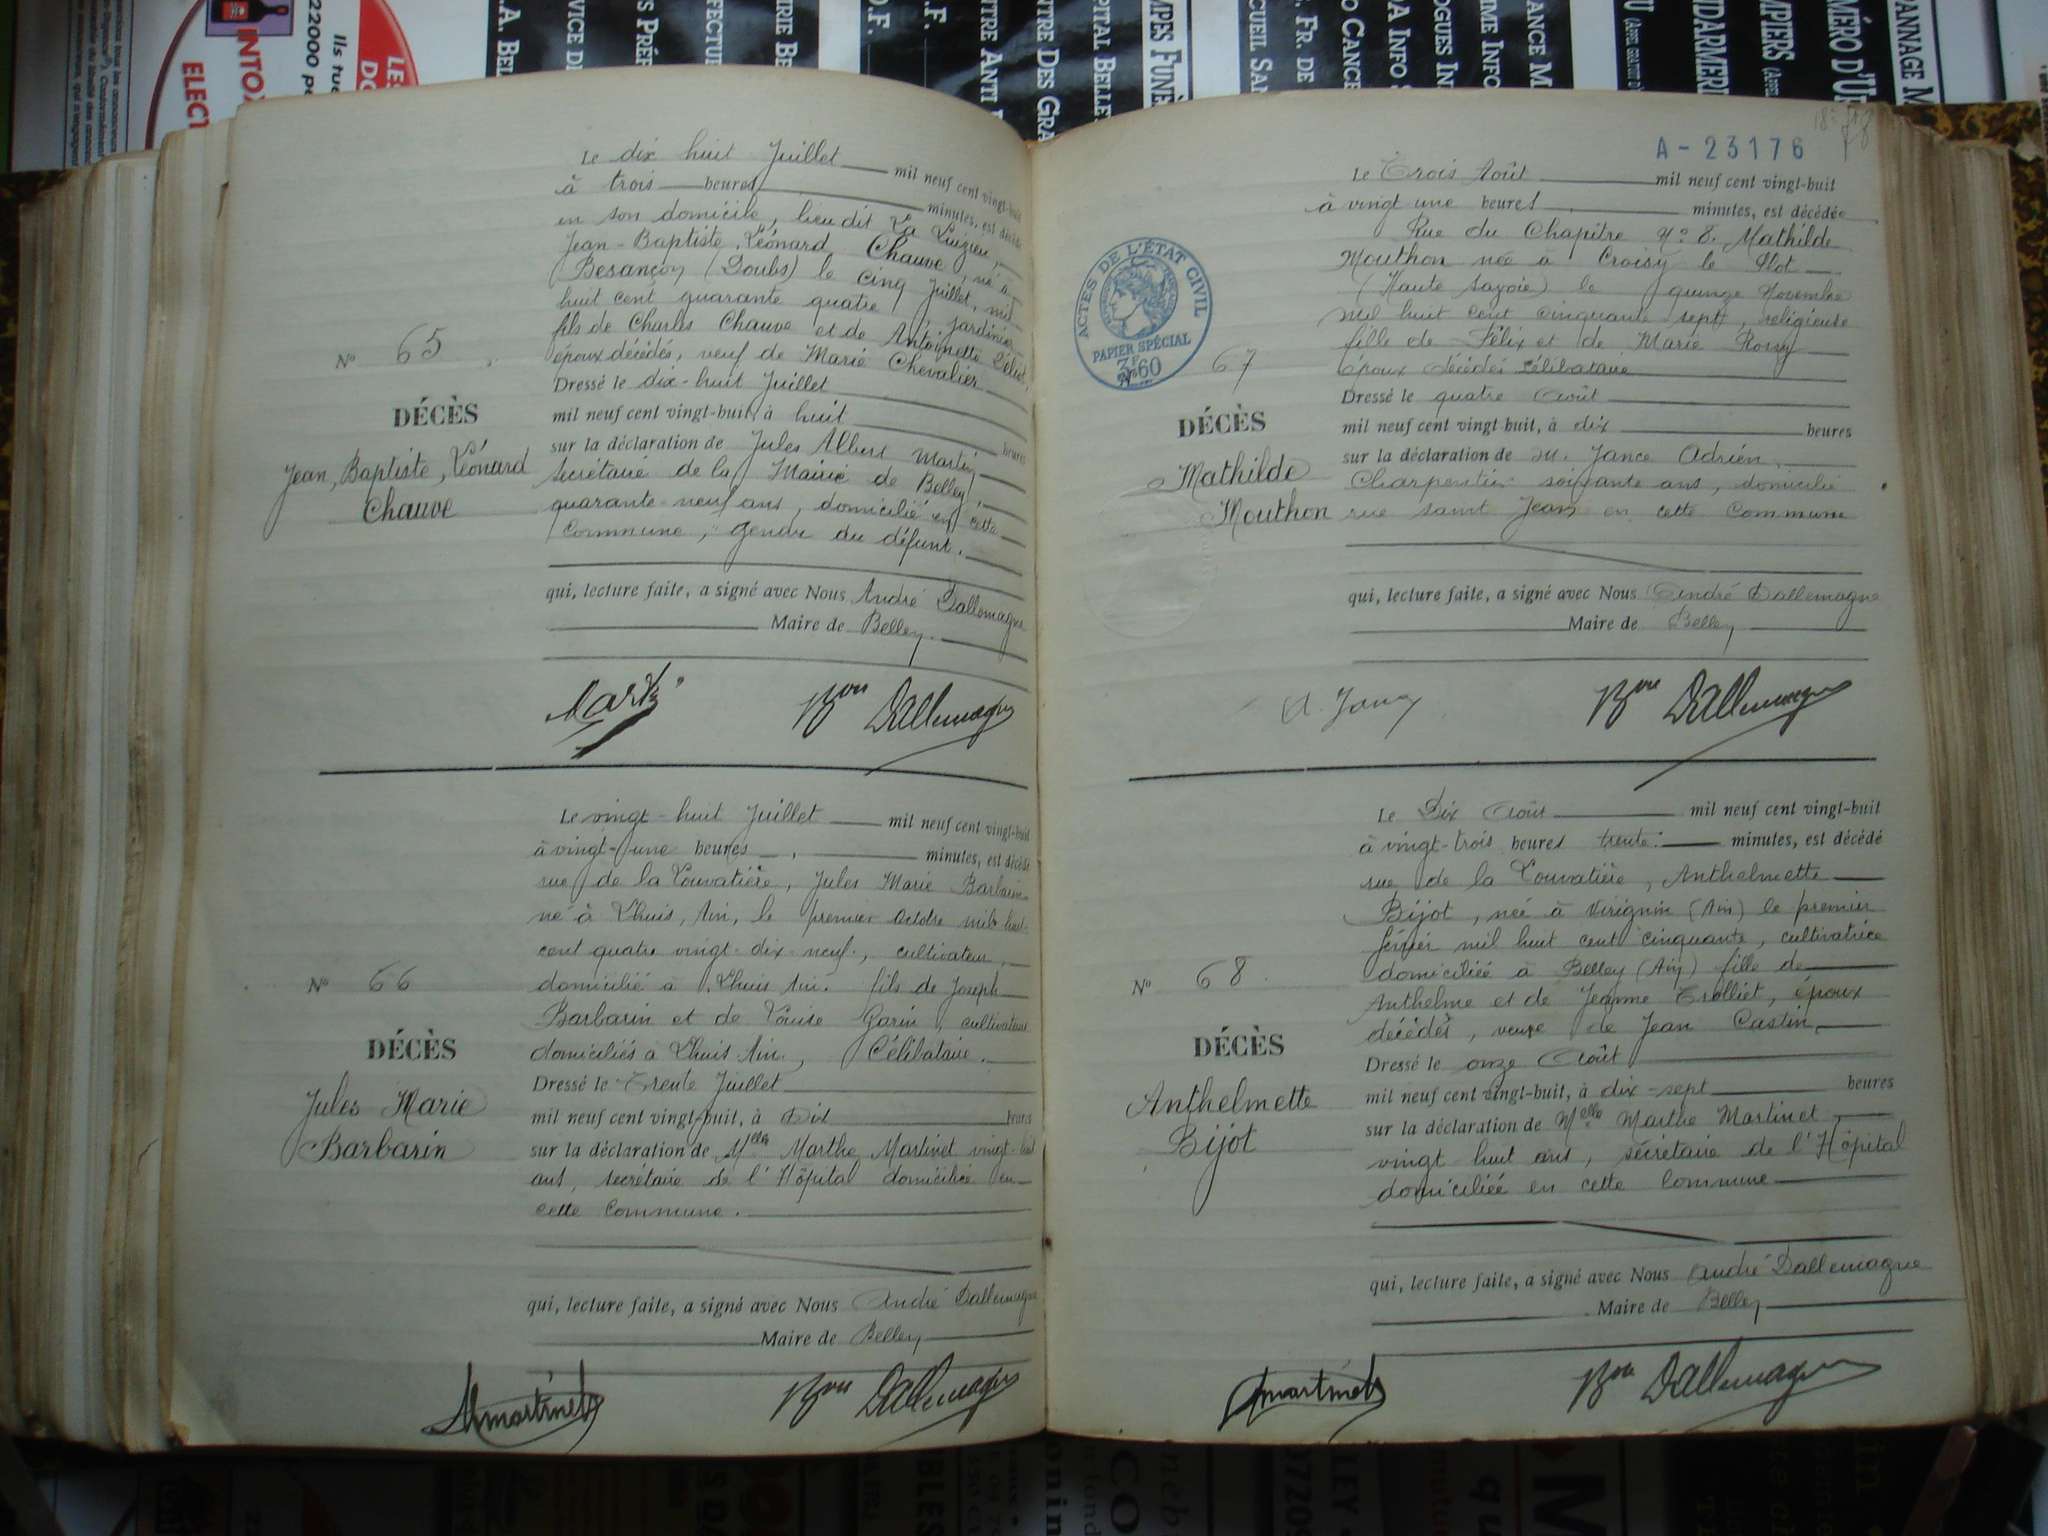 A - 23176
Le dix huit Juillet mil neuf cent vingt-huit
à trois heures minutes, est décédé
en son domicile, lieu dit La
Jean-Baptiste, Léonard Chauve, né à
Besançon (Doubs) le cinq Juillet, mil
huit cent quarante quatre, jardinier
fils de Charles Chauve et de Antoinette
époux décédés, veuf de Marie Chevalier
Dressé le dix-huit Juillet
mil neuf cent vingt-huit, à huit heures
sur la déclaration de Jules Albert Martin
secrétaire de la Mairie de Belley,
quarante-neuf ans, domicilié en cette
Commune, gendre du défunt.
qui, lecture faite, a signé avec Nous André Dallemagne
Maire de Belley.
No 65
DÉCÈS
Jean, Baptiste, Léonard
Chauve
Bon Dallemagne
Le vingt-huit Juillet mil neuf cent vingt-huit
à vingt-une heures minutes, est décédé
rue de la Louvatière, Jules Marie Barbarin
né à Lhuis, Ain, le premier Octobre mil huit
cent quatre vingt-dix-neuf, cultivateur,
domicilié à Lhuis Ain. fils de Joseph
Barbarin et de Louise Garin, cultivateurs
domiciliés à Lhuis Ain, Célibataire.
Dressé le Trente Juillet
mil neuf cent vingt-huit, à Dix heures
sur la déclaration de Melle Marthe Martinet vingt-huit
ans, secrétaire de l'Hôpital domiciliée en
cette commune.
qui, lecture faite, a signé avec Nous André Dallemagne
Maire de Belley
No 66
DÉCÈS
Jules Marie
Barbarin
Martinet
Bon Dallemagne
Le Trois Août mil neuf cent vingt-huit
à vingt une heures minutes, est décédée
Rue du Chapitre No 8. Mathilde
Mouthon née à Croisy le
(Haute Savoie) le quinze Novembre
mil huit cent cinquante sept, religieuse
fille de Félix et de Marie Rossy
époux décédés célibataire
Dressé le quatre Août
mil neuf cent vingt-huit, à dix heures
sur la déclaration de M. Jance Adrien
Charpentier soixante ans, domicilié
rue Saint Jean en cette Commune
qui, lecture faite, a signé avec Nous André Dallemagne
Maire de Belley
ACTES DE L'ÉTAT CIVIL
PAPIER SPÉCIAL
3F60
No 67
DÉCÈS
Mathilde
Mouthon
Bon Dallemagne
Le Dix Août mil neuf cent vingt-huit
à vingt-trois heures trente minutes, est décédé
rue de la Louvatière, Anthelmette
Bijot, née à Virignin (Ain) le premier
février mil huit cent cinquante, cultivatrice
domiciliée à Belley (Ain) fille de
Anthelme et de Jeanne Trolliet, époux
décédés, veuve de Jean Castin,
Dressé le onze Août
mil neuf cent vingt-huit, à dix-sept heures
sur la déclaration de Melle Marthe Martinet,
vingt huit ans, secrétaire de l'Hôpital
domiciliée en cette Commune
qui, lecture faite, a signé avec Nous André Dallemagne
Maire de Belley
No 68
DÉCÈS
Anthelmette
Bijot
Martinet
Bon Dallemagne